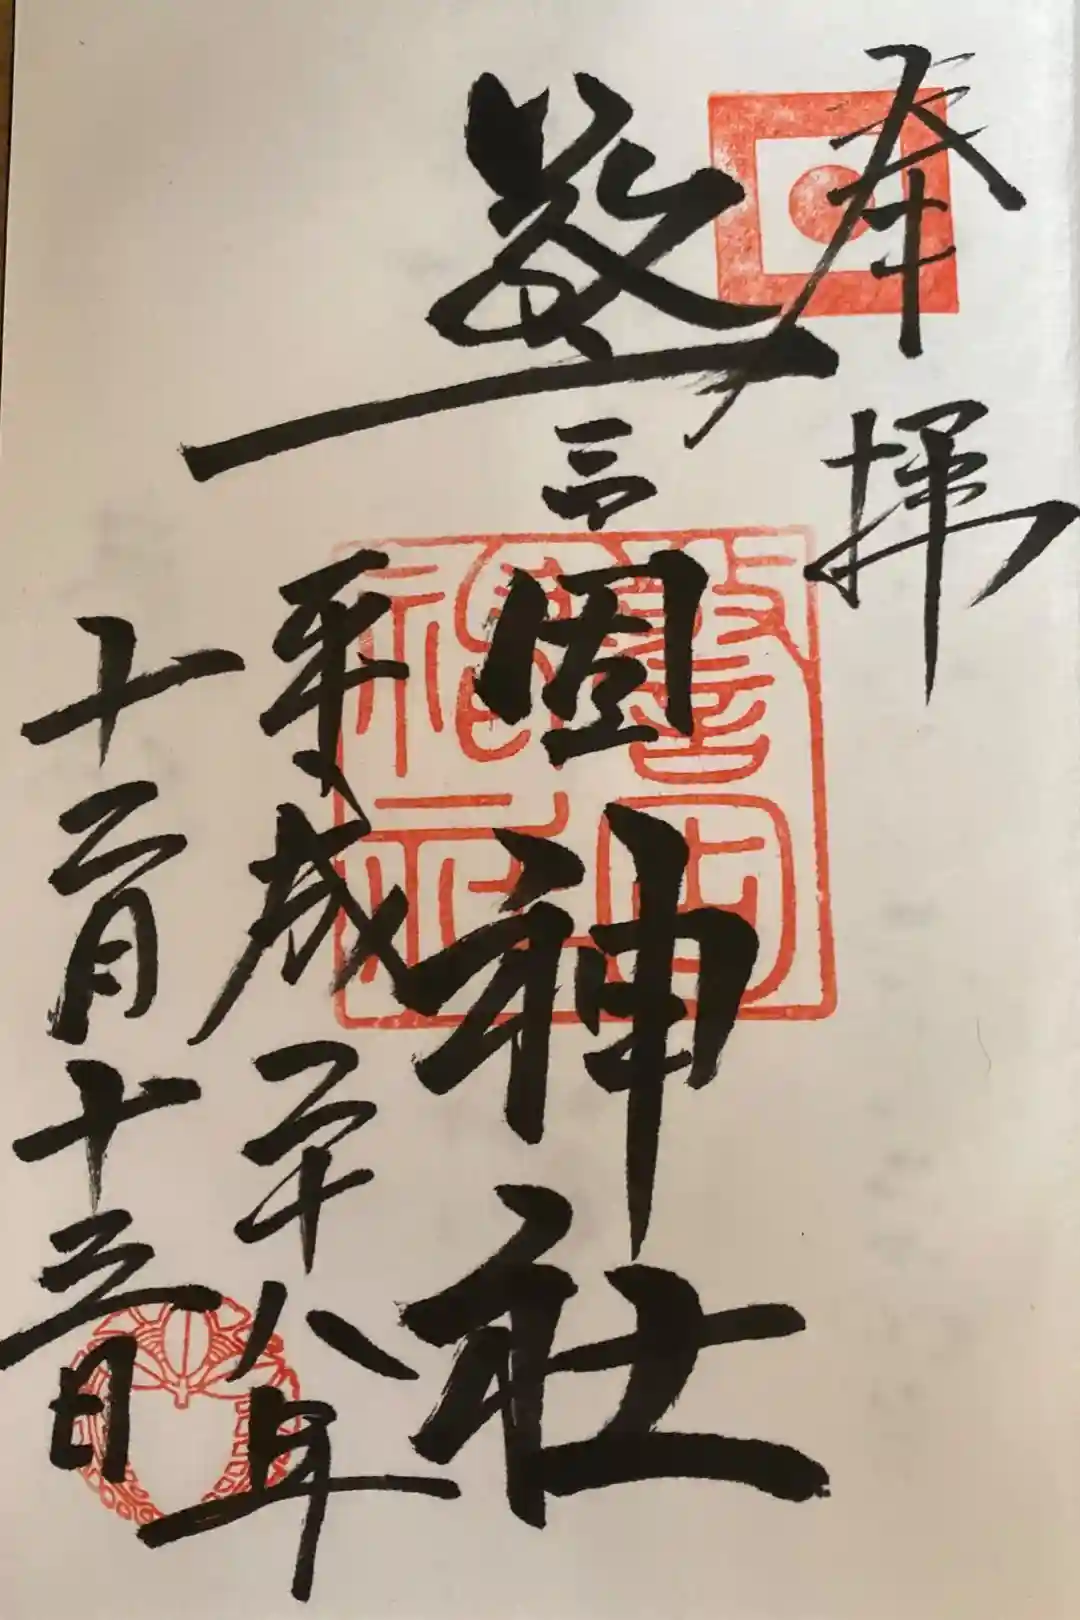 奉拝
警固神社
平成二十八年
十二月十三日
警固神社